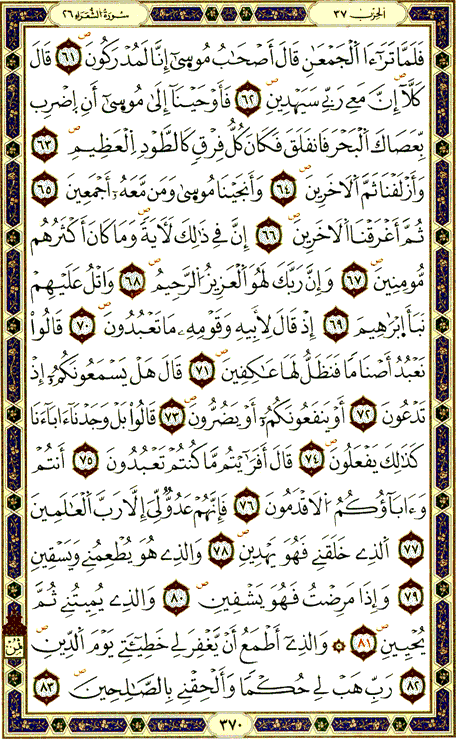 الحِزْبُ ٣٧
سُورَةُ الشُّعَرَاءِ ٢٦
فَلَمَّا تَرَٰٓءَا اَ۬لْجَمْعَٰنِ قَالَ أَصْحَٰبُ مُوس۪ىٰٓ إِنَّا لَمُدْرَكُونَ ٦١ قَالَ
كَلَّآ إِنَّ مَعِے رَبِّے سَيَهْدِينِ ٦٢ فَأَوْحَيْنَآ إِلَىٰ مُوس۪ىٰٓ أَنِ اِ۪ضْرِب
بِّعَصَاكَ اَ۬لْبَحْرَ فَانفَلَقَ فَكَانَ كُلُّ فِرْقٍ كَالطَّوْدِ اِ۬لْعَظِيمِ ٦٣
وَأَزْلَفْنَا ثَمَّ اَ۬لَاخَرِينَ ٦٤ وَأَنجَيْنَا مُوس۪ىٰ وَمَن مَّعَهُۥٓ أَجْمَعِينَ ٦٥
ثُمَّ أَغْرَقْنَا اَ۬لَاخَرِينَ ٦٦ إِنَّ فِے ذَٰلِكَ لَأٓيَةٗ وَمَا كَانَ أَكْثَرُهُم
مُّومِنِينَ ٦٧ وَإِنَّ رَبَّكَ لَهُوَ اَ۬لْعَزِيزُ اُ۬لرَّحِيمُ ٦٨ وَاتْلُ عَلَيْهِمْ
نَبَأَ اِبْرَٰهِيمَ ٦٩ إِذْ قَالَ لِأَبِيهِ وَقَوْمِهِۦ مَا تَعْبُدُونَ ٧٠ قَالُواْ
نَعْبُدُ أَصْنَاماٗ فَنَظَلُّ لَهَا عَٰكِفِينَ ٧١ قَالَ هَلْ يَسْمَعُونَكُمُۥٓ إِذْ
تَدْعُونَ ٧٢ أَوْ يَنفَعُونَكُمُۥٓ أَوْ يَضُرُّونَ ٧٣ قَالُواْ بَلْ وَجَدْنَآ ءَابَآءَنَا
كَذَٰلِكَ يَفْعَلُونَ ٧٤ قَالَ أَفَرَٰٓيْتُم مَّا كُنتُمْ تَعْبُدُونَ ٧٥ أَنتُمْ
وَءَابَآؤُكُمُ اُ۬لَاقْدَمُونَ ٧٦ فَإِنَّهُمْ عَدُوّٞ لِّيَ إِلَّا رَبَّ اَ۬لْعَٰلَمِينَ
٧٧ اَ۬لذِے خَلَقَنِے فَهُوَ يَهْدِينِ ٧٨ وَالذِے هُوَ يُطْعِمُنِے وَيَسْقِينِ
٧٩ وَإِذَا مَرِضْتُ فَهُوَ يَشْفِينِ ٨٠ وَالذِے يُمِيتُنِے ثُمَّ
يُحْيِينِ ٨١ وَالذِےٓ أَطْمَعُ أَنْ يَّغْفِرَ لِے خَطِيٓـَٔتِے يَوْمَ اَ۬لدِّينِ
٨٢ رَبِّ هَبْ لِے حُكْماٗ وَأَلْحِقْنِے بِالصَّٰلِحِينَ ٨٣
ثُمُن
٣٧٠